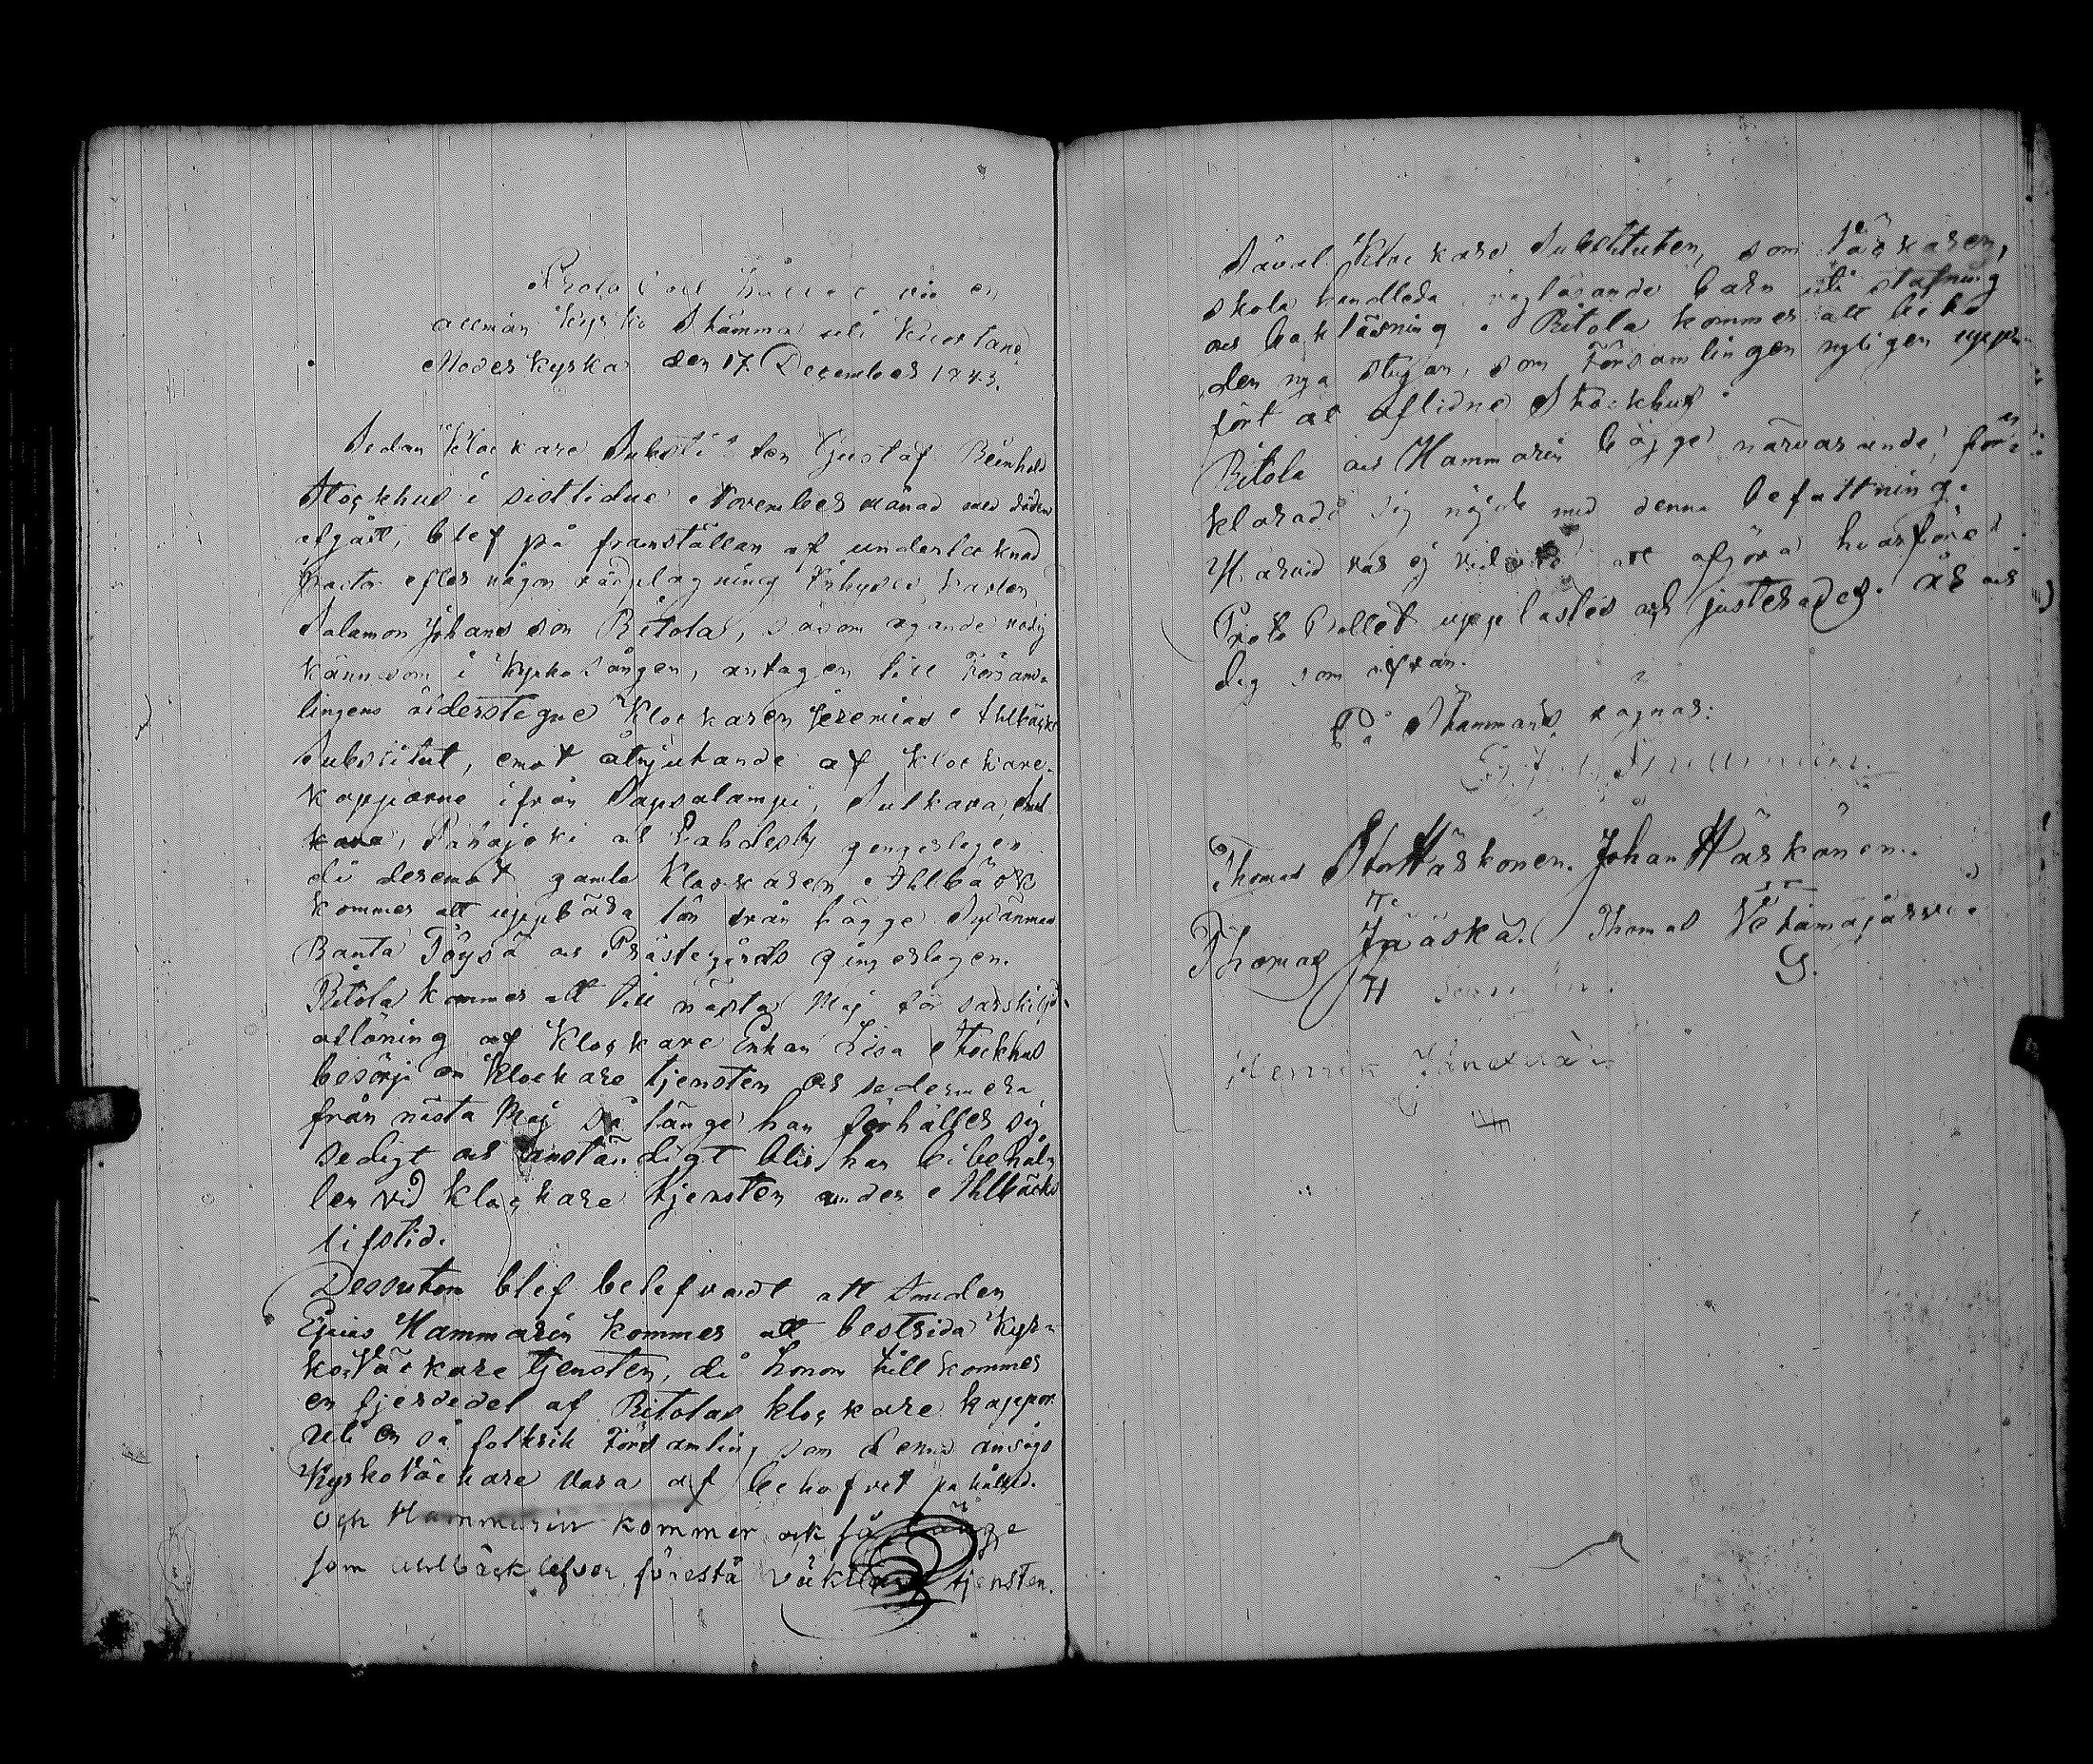 Protocoll hållet vid en
allmän Kyrko Stämma uti Kuortane
Moderkyrka den 17 December 1843.
Sedan Klockare Substituten Gustaf Reinhold
Stockhus i sistlidne November månad med döden
afgått, blef på framställan af undertecknad
Pastor efter någon rådplägning
Salamon Johansson Ritola, såsom ägande nödig
kännedom i Kyrkosången, antagen till Försam-
lingens ålderstegne Klockaren Jeremias Ahlbäcks
Substitut, emot åtnjutande af Klockare-
kapporne ifrån Sapsalampi, Sulkava,
kava, Pahajoki och Lahdesky gengerlagen
då deremot gamla Klockaren Ahlbäck
kommer att uppbära lön från bägge Sydänmaa
Ranta Töysä och Prästegårds gingerlagen.
Ritola kommer att till nästa Maj för särskild
aflöning af Klockare Enkan Lisa Stockhus
besörja Klockare tjensten och sedermera
från nästa Maj så länge han förhåller sig
sedigt och anständigt blir han bibehål-
len vid klockare tjensten under Ahlbäcks
lifstid.
Dessutom blef belefvadt att Smeden
Hammarin kommer att bestrida Kyr-
koväckare tjensten, då honom tillkommer
en fjerdedel af Ritolas klockare kappor.
Uti en så folkrik Församling som denna ansågs
Kyrkoväckare vara af behofvet påkallad.
och Hammarin kommer ock så länge
som Ahlbäck lefver förestå väktare tjensten.
Såväl Klockare Substituten, som Väckaren,
skola handleda låsande barn uti stafning
och bokläsning. Ritola kommer att bebo
den nya stugan, som Församlingen nyligen uppn-
fört åt aflidne Stockhus.
Ritola och Hammarin bägge närvarande, för-
klarade sig nöjde med denna befattning.
Härvid var ej vidare att afgöra hvarföre
Protokollet upplästes och justerades. År och
dag som ofvan.
På Stämmans vägnar:
Thomas StorHärkönen. Johan Härkönen.
Thomas Jääskä. Thomas Vetämäjärvi
H
G.
Henrik